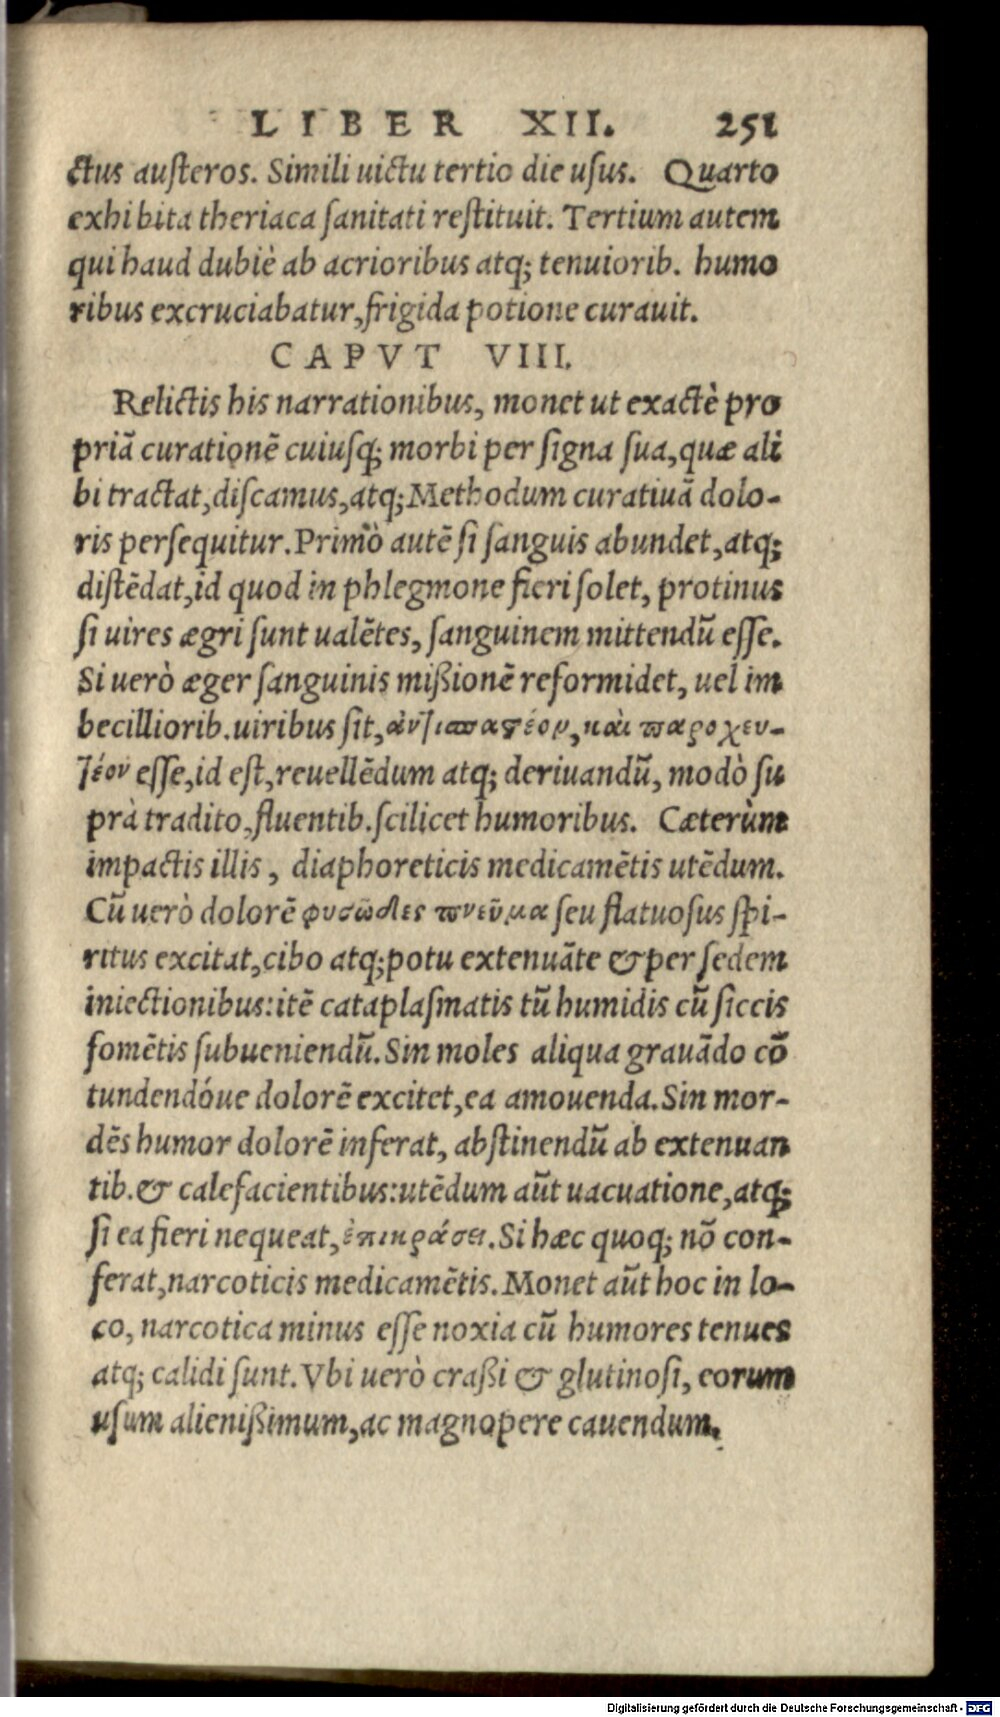 LIBER XII. 251
ctus austeros. Simili uictu tertio die usus. Quarto
exhibita theriaca sanitati restituit. Tertium autem
qui haud dubiè ab acrioribus atq; tenuiorib. humo
ribus excruciabatur, frigida potione curauit.
CAPVT VIII.
Relictis his narrationibus, monet ut exactè pro
priã curationẽ cuiusq; morbi per signa sua, quæ ali
bi tractat, discamus, atq; Methodum curatiuã dolo-
ris persequitur. Primò autẽ si sanguis abundet, atq;
distẽdat, id quod in phlegmone fieri solet, protinus
si uires ægri sunt ualẽtes, sanguinem mittendũ esse.
Si uerò æger sanguinis mißionẽ reformidet, uel im
becilliorib. uiribus sit, ἀντισπαστέον, καὶ παροχευ-
τέον esse, id est, reuellẽdum atq; deriuandũ, modò su
prà tradito, fluentib. scilicet humoribus. Cæterùm
impactis illis, diaphoreticis medicamẽtis utẽdum.
Cũ uerò dolorẽ φυσῶδες πνεῦμα seu flatuosus spi-
ritus excitat, cibo atq; potu extenuãte & per sedem
iniectionibus: itẽ cataplasmatis tũ humidis cũ siccis
fomẽtis subueniendũ. Sin moles aliqua grauãdo cõ
tundendóue dolorẽ excitet, ea amouenda. Sin mor-
dẽs humor dolorẽ inferat, abstinendũ ab extenuan
tib. & calefacientibus: utẽdum aũt uacuatione, atq;
si ea fieri nequeat, ἐπικράσει. Si hæc quoq; nõ con-
ferat, narcoticis medicamẽtis. Monet aũt hoc in lo-
co, narcotica minus esse noxia cũ humores tenues
atq; calidi sunt. Vbi uerò craßi & glutinosi, eorum
usum alienißimum, ac magnopere cauendum.
Digitalisierung gefördert durch die Deutsche Forschungsgemeinschaft - DFG